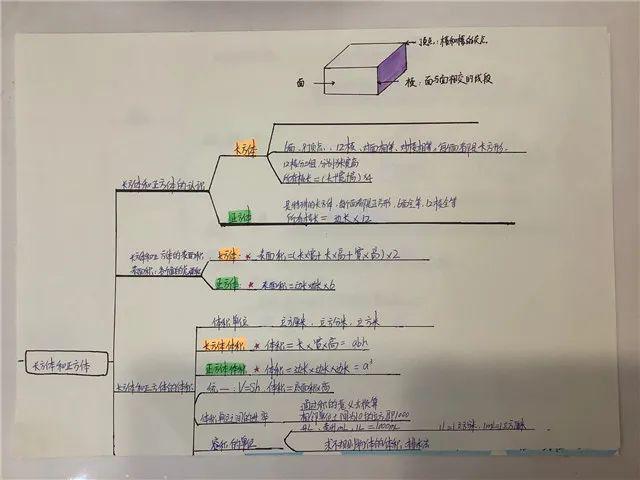 顶点：棱和棱的交点
面
棱：面与面相交的线段
长方体
6面、8顶点、12棱、对面相等、对棱相等，每个面都是长方形。
12棱分3组，分别为长宽高
所有棱长=(长+宽+高)×4
长方体和正方体的认识
正方体
是特殊的长方体，每个面都是正方形，6面全等，12棱全等
所有棱长= 边长×12
长方体和正方体的表面积
长方体：★ 表面积=(长×宽+长×高+宽×高)×2
正方体：★ 表面积=边长×边长×6
体积单位 立方厘米，立方分米，立方米
长方体体积 ★ 体积=长×宽×高=abh
长方体和正方体
正方体体积 ★ 体积=边长×边长×边长=a³
长方体和正方体的体积
统一：V=Sh，体积=底面积×高
体积单位之间的进率
1L=1000mL
容积的单位
求不规则物体的体积：排水法